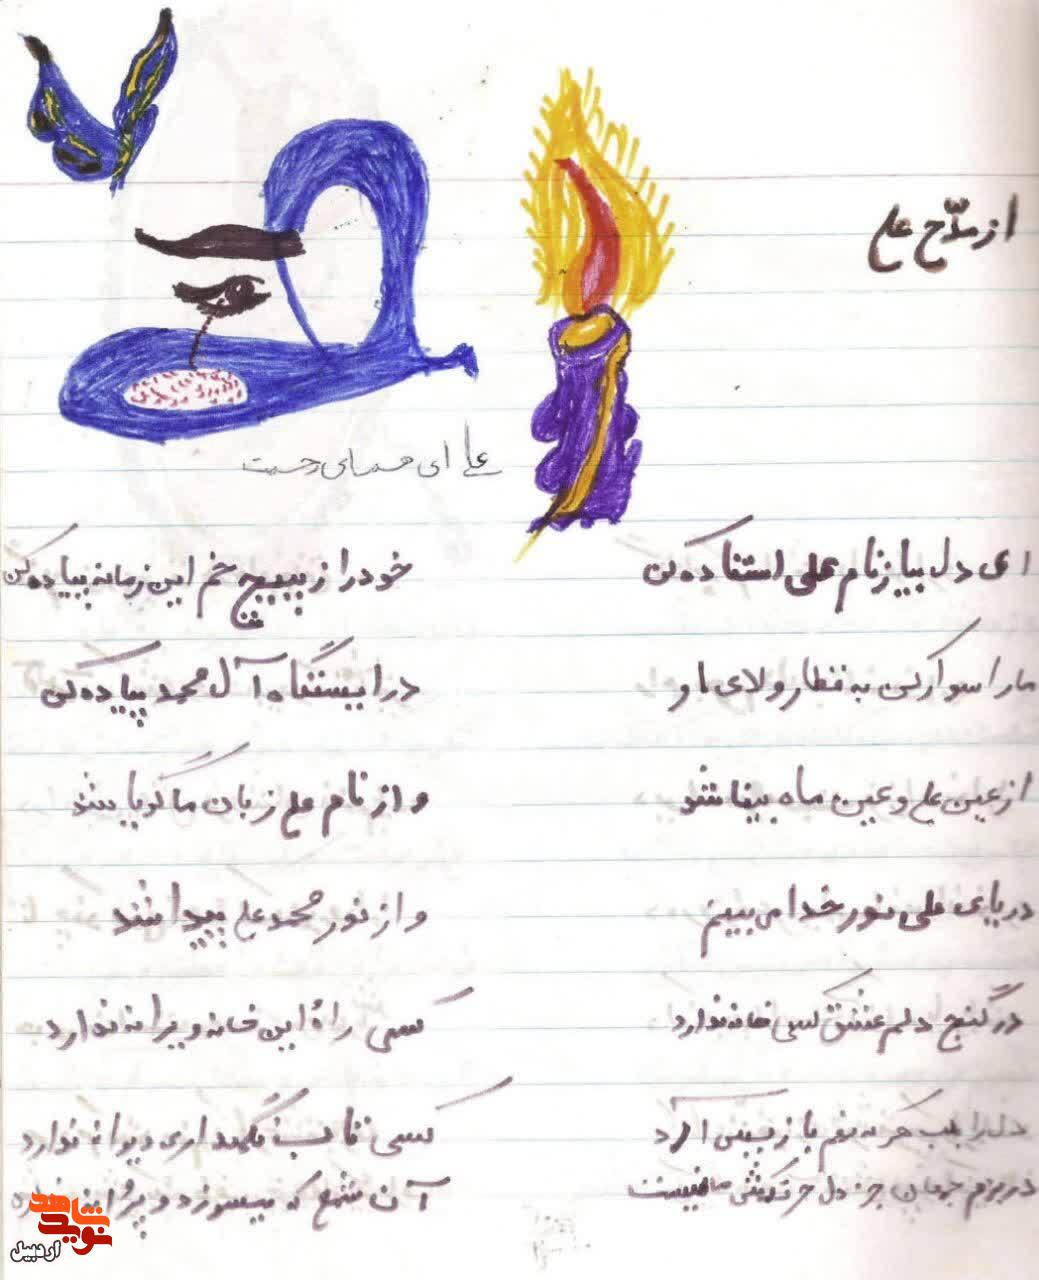 از مدّاح علی
علی ای همای رحمت
ای دل بیا ز نام علی استفاده کن خود را ز پیچ خم این زمانه پیاده کن
ما را سوار کن به قطار ولای او در ایستگاه آل محمد پیاده کن
از عین علی و عین ماه بینا شد و از نام علی زبان ما گویا شد
در پای علی نور خدا می بینم و از نور محمد علی پیدا شد
در گنج دلم عشق کسی خانه ندارد کسی راهٔ این خانه ویرانه ندارد
دل را به هر که دهم باز پس آرد کسی تاب نگهداری دیوانه ندارد
در بزم جهان جز دل نیست آن شمع که میسوزد و پروانه ندارد
نوید شاهد
اردبیل